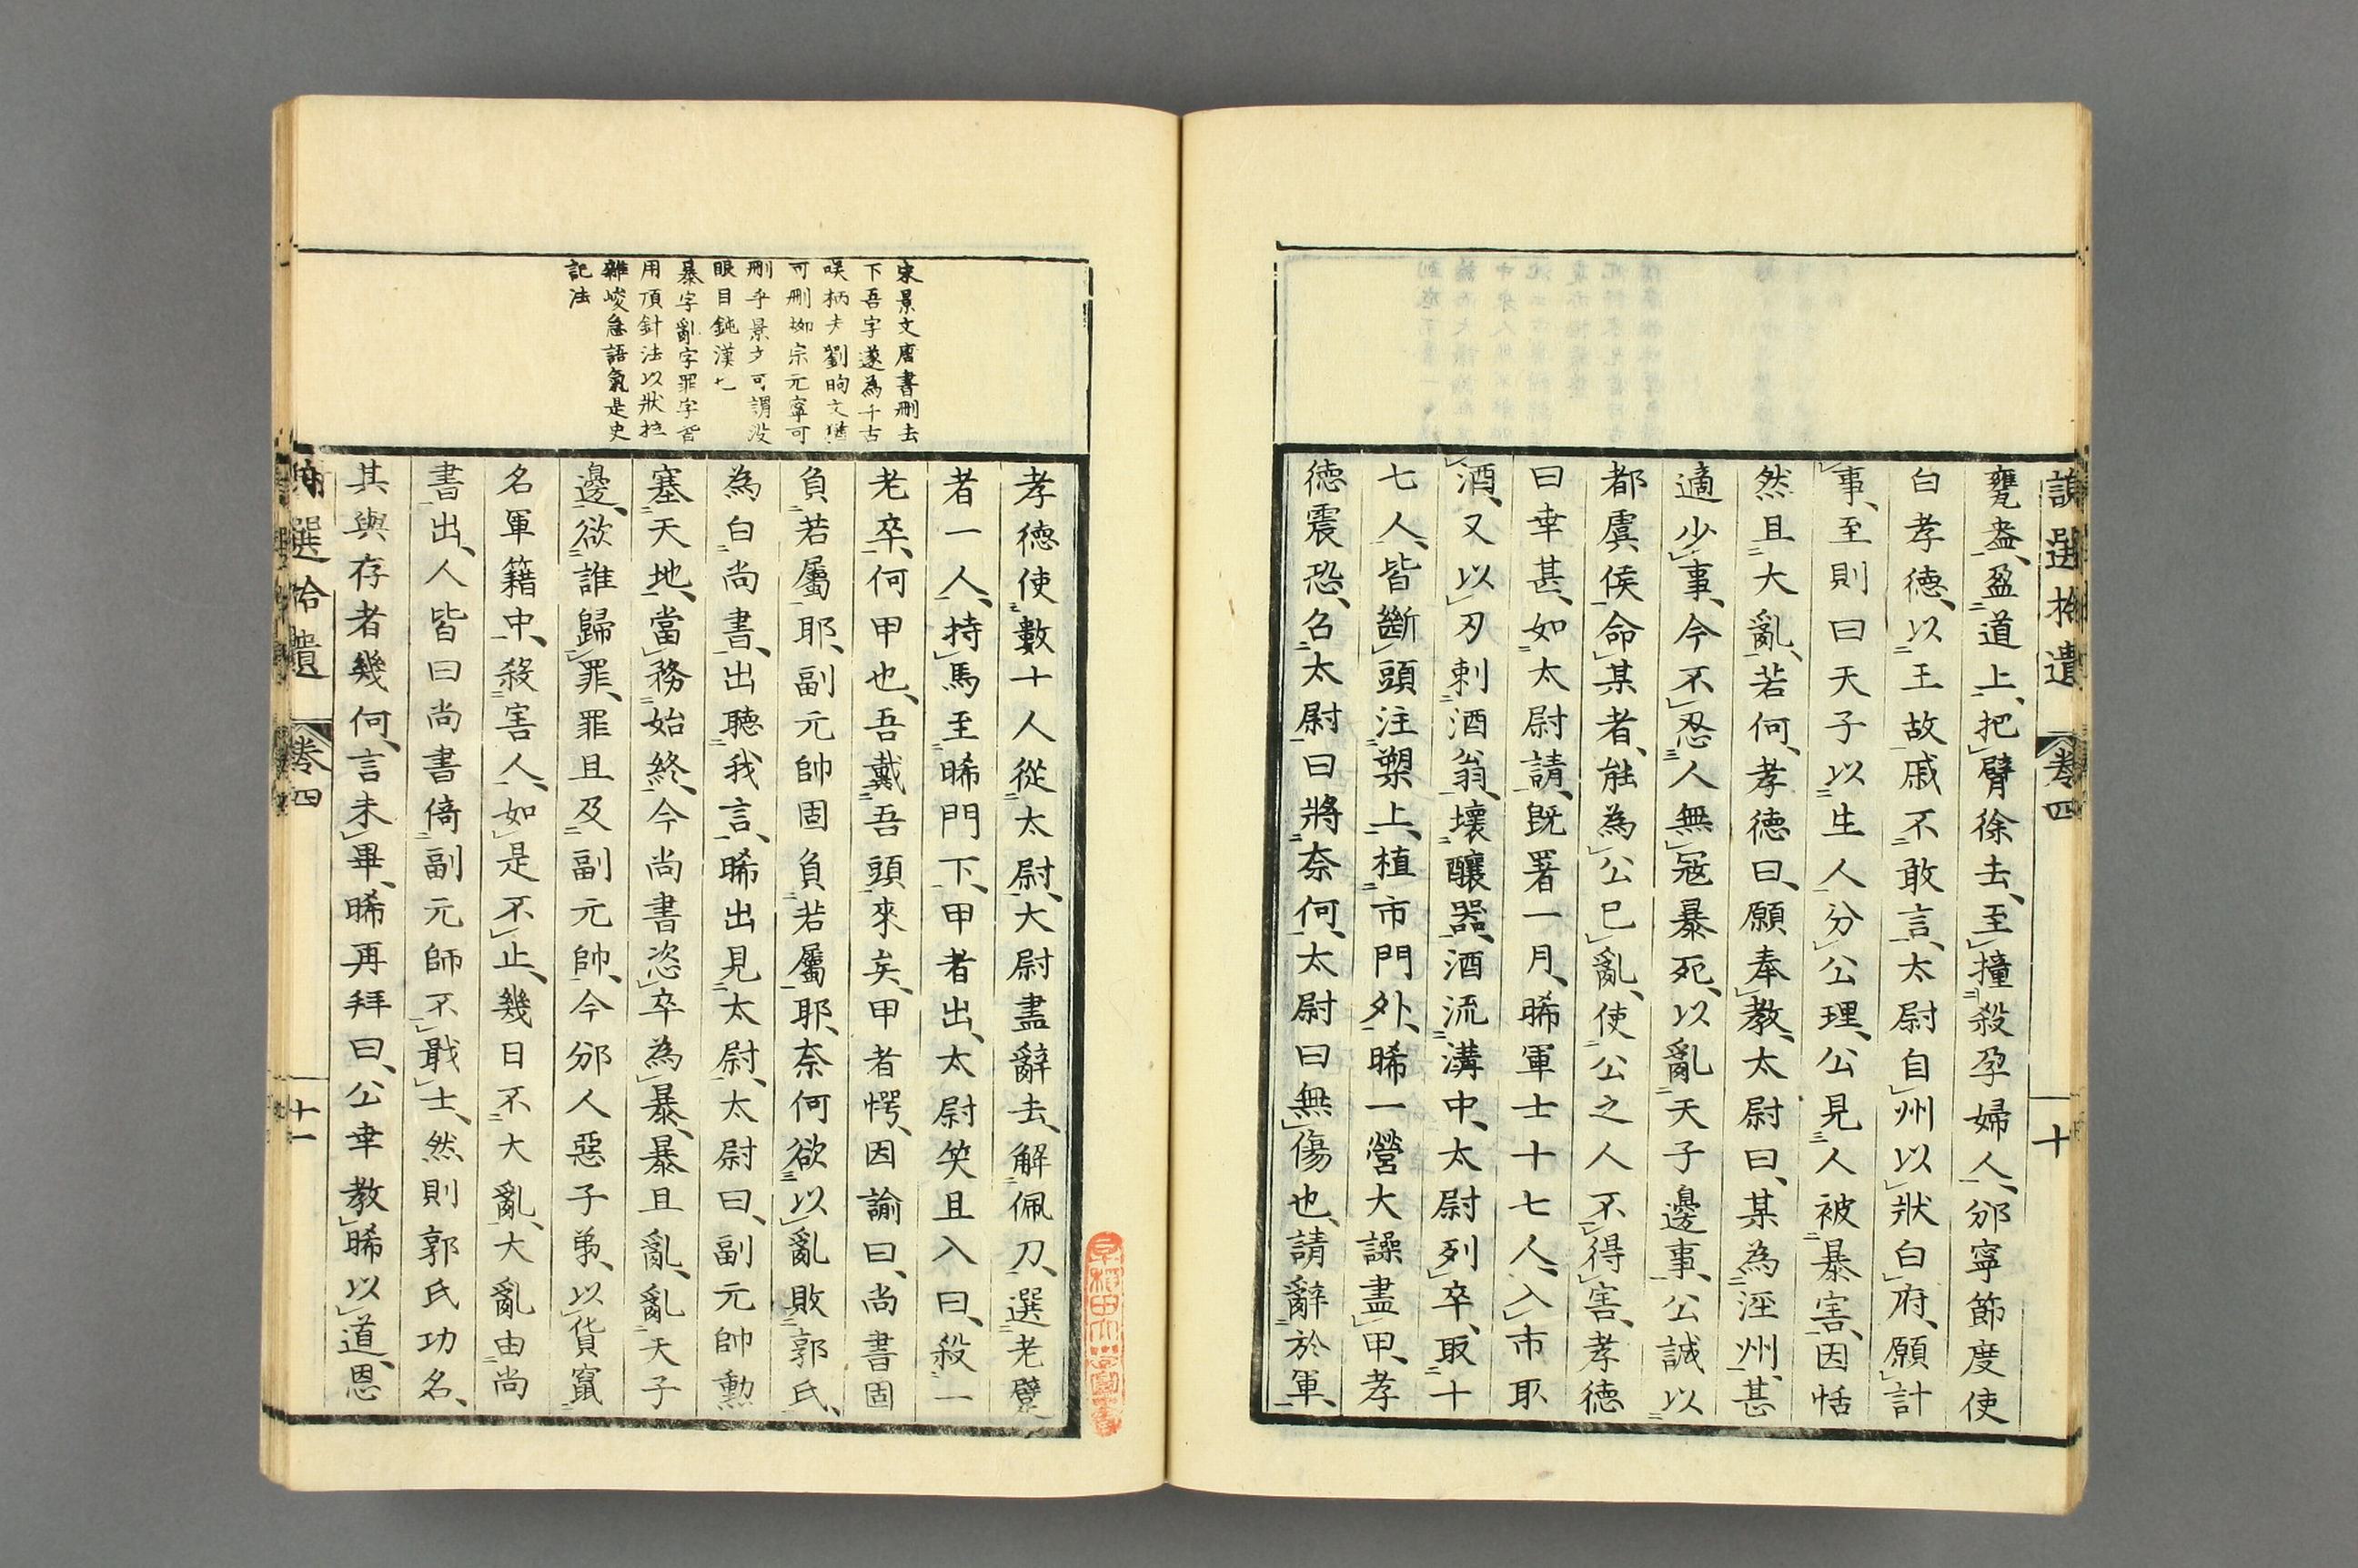 甕盎、盈道上、把臂徐去、至撞殺孕婦人、邠寧節度使
白孝德、以王故戚不敢言、太尉自州以狀白府、願計
事、至則曰天子以生人分公理、公見人被暴害、因恬
然且大亂、若何、孝德曰、願奉教、太尉曰、某為涇州、甚
適少事、今不忍人無寇暴死、以亂天子邊事、公誠以
都虞侯命某者、能為公已亂、使公之人不得害、孝德
曰幸甚、如太尉請、既署一月、晞軍士十七人、入市取
酒、又以刃刺酒翁、壞釀器、酒流溝中、太尉列卒、取十
七人、皆斷頭注槊上、植市門外、晞一營大譟盡甲、孝
德震恐、召太尉曰將奈何、太尉曰無傷也、請辭於軍、
卷四
十
宋景文唐書刪去
下吾字遂為千古
咲柄夫劉昫文猶
可刪柳宗元寧可
刪乎景文可謂沒
眼目鈍漢乜
暴字亂字罪字皆
用頂針法以狀拉
雜峻急語氣是史
記法
孝德使數十人從太尉、大尉盡辭去、解佩刀、選老躄
者一人、持馬至晞門下、甲者出、太尉笑且入曰、殺一
老卒、何甲也、吾戴吾頭來矣、甲者愕、因諭曰、尚書固
負若屬耶、副元帥固負若屬耶、奈何欲以亂敗郭氏、
為白尚書、出聽我言、晞出見太尉、太尉曰、副元帥勲
塞天地、當務始終、今尚書恣卒為暴、暴且亂、亂天子
邊、欲誰歸罪、罪且及副元帥、今邠人惡子弟、以貨竄
名軍籍中、殺害人、如是不止、幾日不大亂、大亂由尚
書出、人皆曰尚書倚副元師不戢士、然則郭氏功名、
其與存者幾何、言未畢、晞再拜曰、公幸教晞以道、恩
卷四
十一